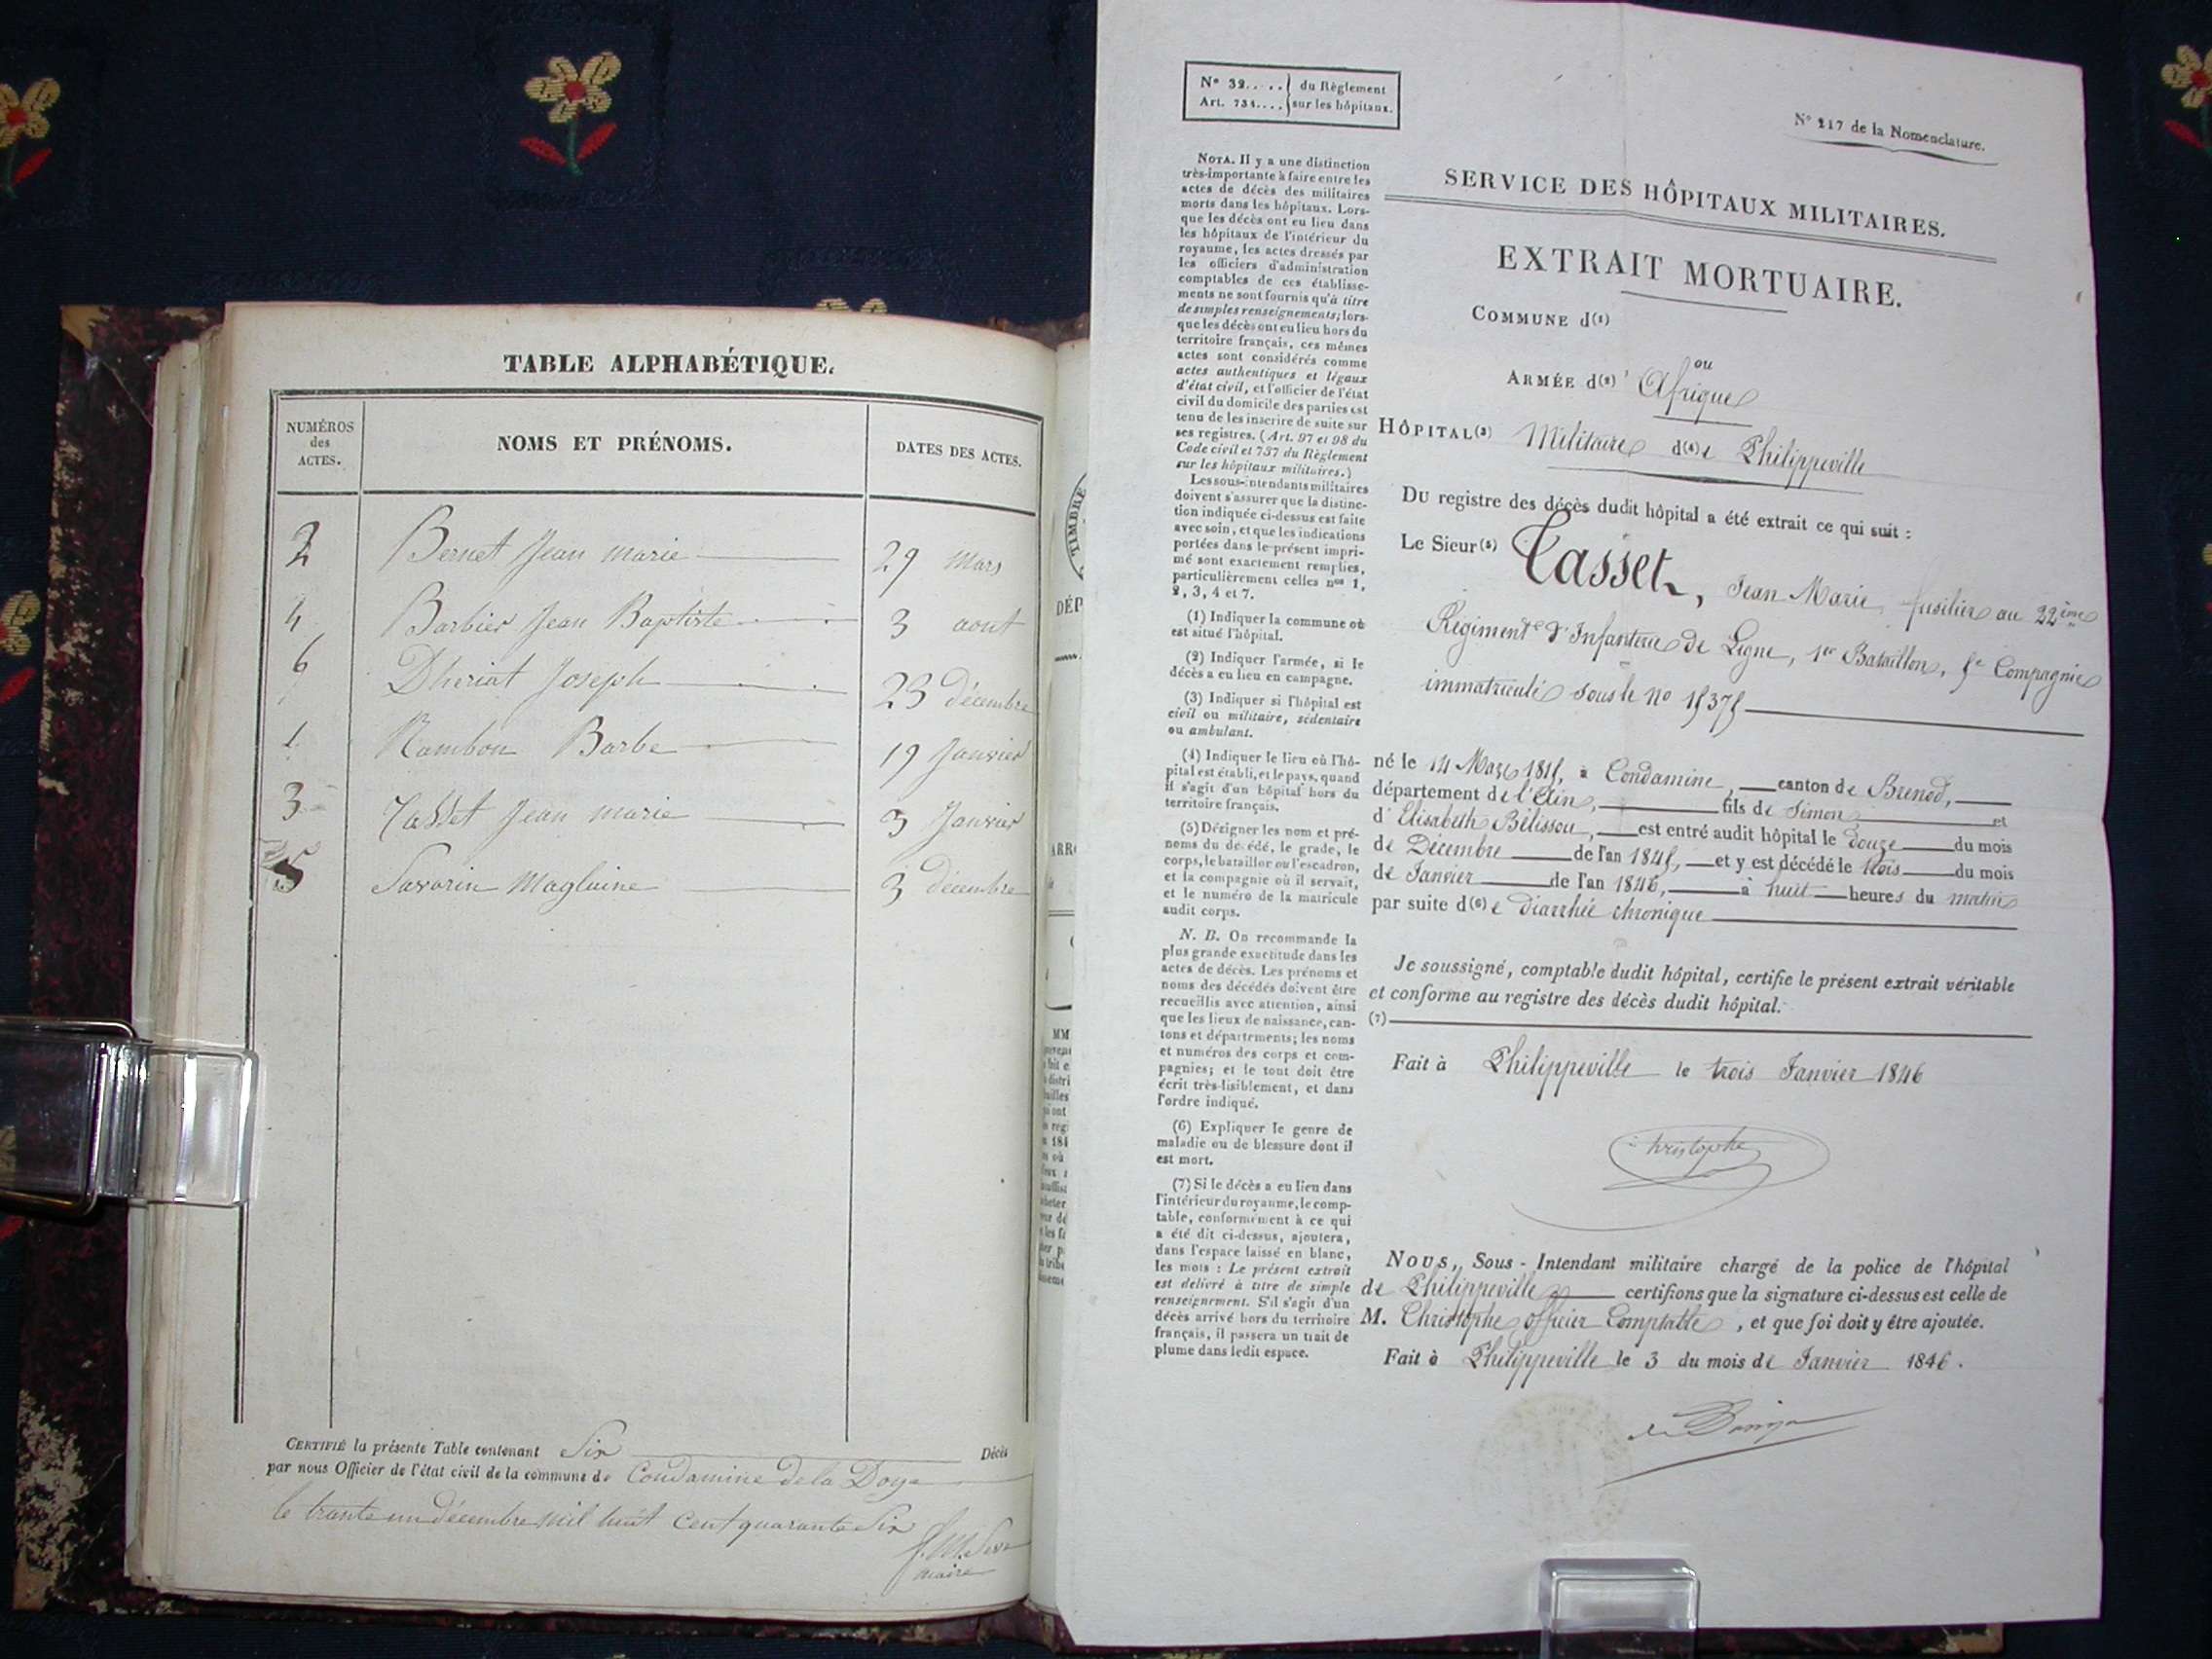 TABLE ALPHABÉTIQUE.
NUMÉROS
des
ACTES.
NOMS ET PRÉNOMS.
DATES DES ACTES.
2 Bernet Jean marie 29 Mars
4 Barbier Jean Baptiste 3 aout
6 Dheriat Joseph 23 décembre
1 Rambou Barbe 19 Janvier
3 Tasset Jean marie 3 Janvier
5 Savarin Magluine 3 décembre
CERTIFIÉ la présente Table contenant Six Décès
par nous Officier de l'état civil de la commune de Condamine de la Doye
le trante un décembre mil huit cent quarante Six
maire
TIMBRE
DÉP
N° 32..... du Règlement
Art. 731.... sur les hôpitaux.
N° 217 de la Nomenclature.
SERVICE DES HÔPITAUX MILITAIRES.
EXTRAIT MORTUAIRE.
COMMUNE d(1)
ou
ARMÉE d(2)' Afrique
HÔPITAL(3) Militaire d(4)e Philippeville
DU registre des décès dudit hôpital a été extrait ce qui suit :
Le Sieur(5) Tasset, Jean Marie fusilier au 22ème
Régiment d'Infanterie de Ligne, 1er Bataillon, 5e Compagnie
immatriculé sous le no 15375
né le 14 Mars 1815, à Condamine, canton de Brenod,
département de l'Ain, fils de Simon et
d'Elisabeth Bélissou, est entré audit hôpital le douze du mois
de Décembre de l'an 1845, et y est décédé le trois du mois
de Janvier de l'an 1846, à huit heures du matin
par suite d(6)e diarrhée chronique
Je soussigné, comptable dudit hôpital, certifie le présent extrait véritable
et conforme au registre des décès dudit hôpital.
(7)
Fait à Philippeville le trois Janvier 1846
Christophe
NOUS, Sous-Intendant militaire chargé de la police de l'hôpital
de Philippeville certifions que la signature ci-dessus est celle de
M. Christophe officier Comptable, et que foi doit y être ajoutée.
Fait à Philippeville le 3 du mois de Janvier 1846.
NOTA. Il y a une distinction
très-importante à faire entre les
actes de décès des militaires
morts dans les hôpitaux. Lors-
que les décès ont eu lieu dans
les hôpitaux de l'intérieur du
royaume, les actes dressés par
les officiers d'administration
comptables de ces établisse-
ments ne sont fournis qu'à titre
de simples renseignements; lors-
que les décès ont eu lieu hors du
territoire français, ces mêmes
actes sont considérés comme
actes authentiques et légaux
d'état civil, et l'officier de l'état
civil du domicile des parties est
tenu de les inscrire de suite sur
ses registres. (Art. 97 et 98 du
Code civil et 737 du Règlement
sur les hôpitaux militaires.)
Les sous-intendants militaires
doivent s'assurer que la distinc-
tion indiquée ci-dessus est faite
avec soin, et que les indications
portées dans le présent impri-
mé sont exactement remplies,
particulièrement celles nos 1,
2, 3, 4 et 7.
(1) Indiquer la commune où
est situé l'hôpital.
(2) Indiquer l'armée, si le
décès a eu lieu en campagne.
(3) Indiquer si l'hôpital est
civil ou militaire, sédentaire
ou ambulant.
(4) Indiquer le lieu où l'hô-
pital est établi, et le pays, quand
il s'agit d'un hôpital hors du
territoire français.
(5) Désigner les nom et pré-
noms du décédé, le grade, le
corps, le bataillon ou l'escadron,
et la compagnie où il servait,
et le numéro de la matricule
audit corps.
N. B. On recommande la
plus grande exactitude dans les
actes de décès. Les prénoms et
noms des décédés doivent être
recueillis avec attention, ainsi
que les lieux de naissance, can-
tons et départements; les noms
et numéros des corps et com-
pagnies; et le tout doit être
écrit très-lisiblement, et dans
l'ordre indiqué.
(6) Expliquer le genre de
maladie ou de blessure dont il
est mort.
(7) Si le décès a eu lieu dans
l'intérieur du royaume, le comp-
table, conformément à ce qui
a été dit ci-dessus, ajoutera,
dans l'espace laissé en blanc,
les mots : Le présent extrait
est délivré à titre de simple
renseignement. S'il s'agit d'un
décès arrivé hors du territoire
français, il passera un trait de
plume dans ledit espace.